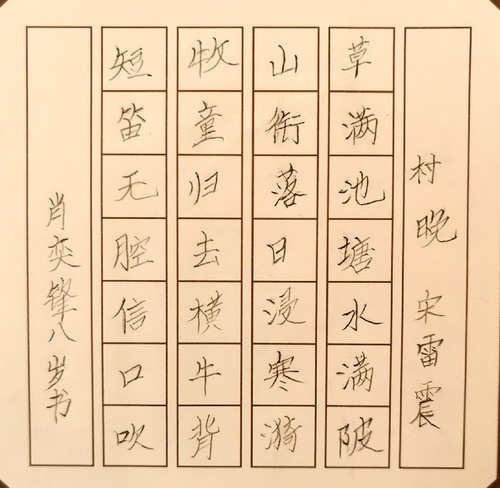 村晚 宋雷震
草满池塘水满陂
山衔落日浸寒漪
牧童归去横牛背
短笛无腔信口吹
肖奕锋八岁书